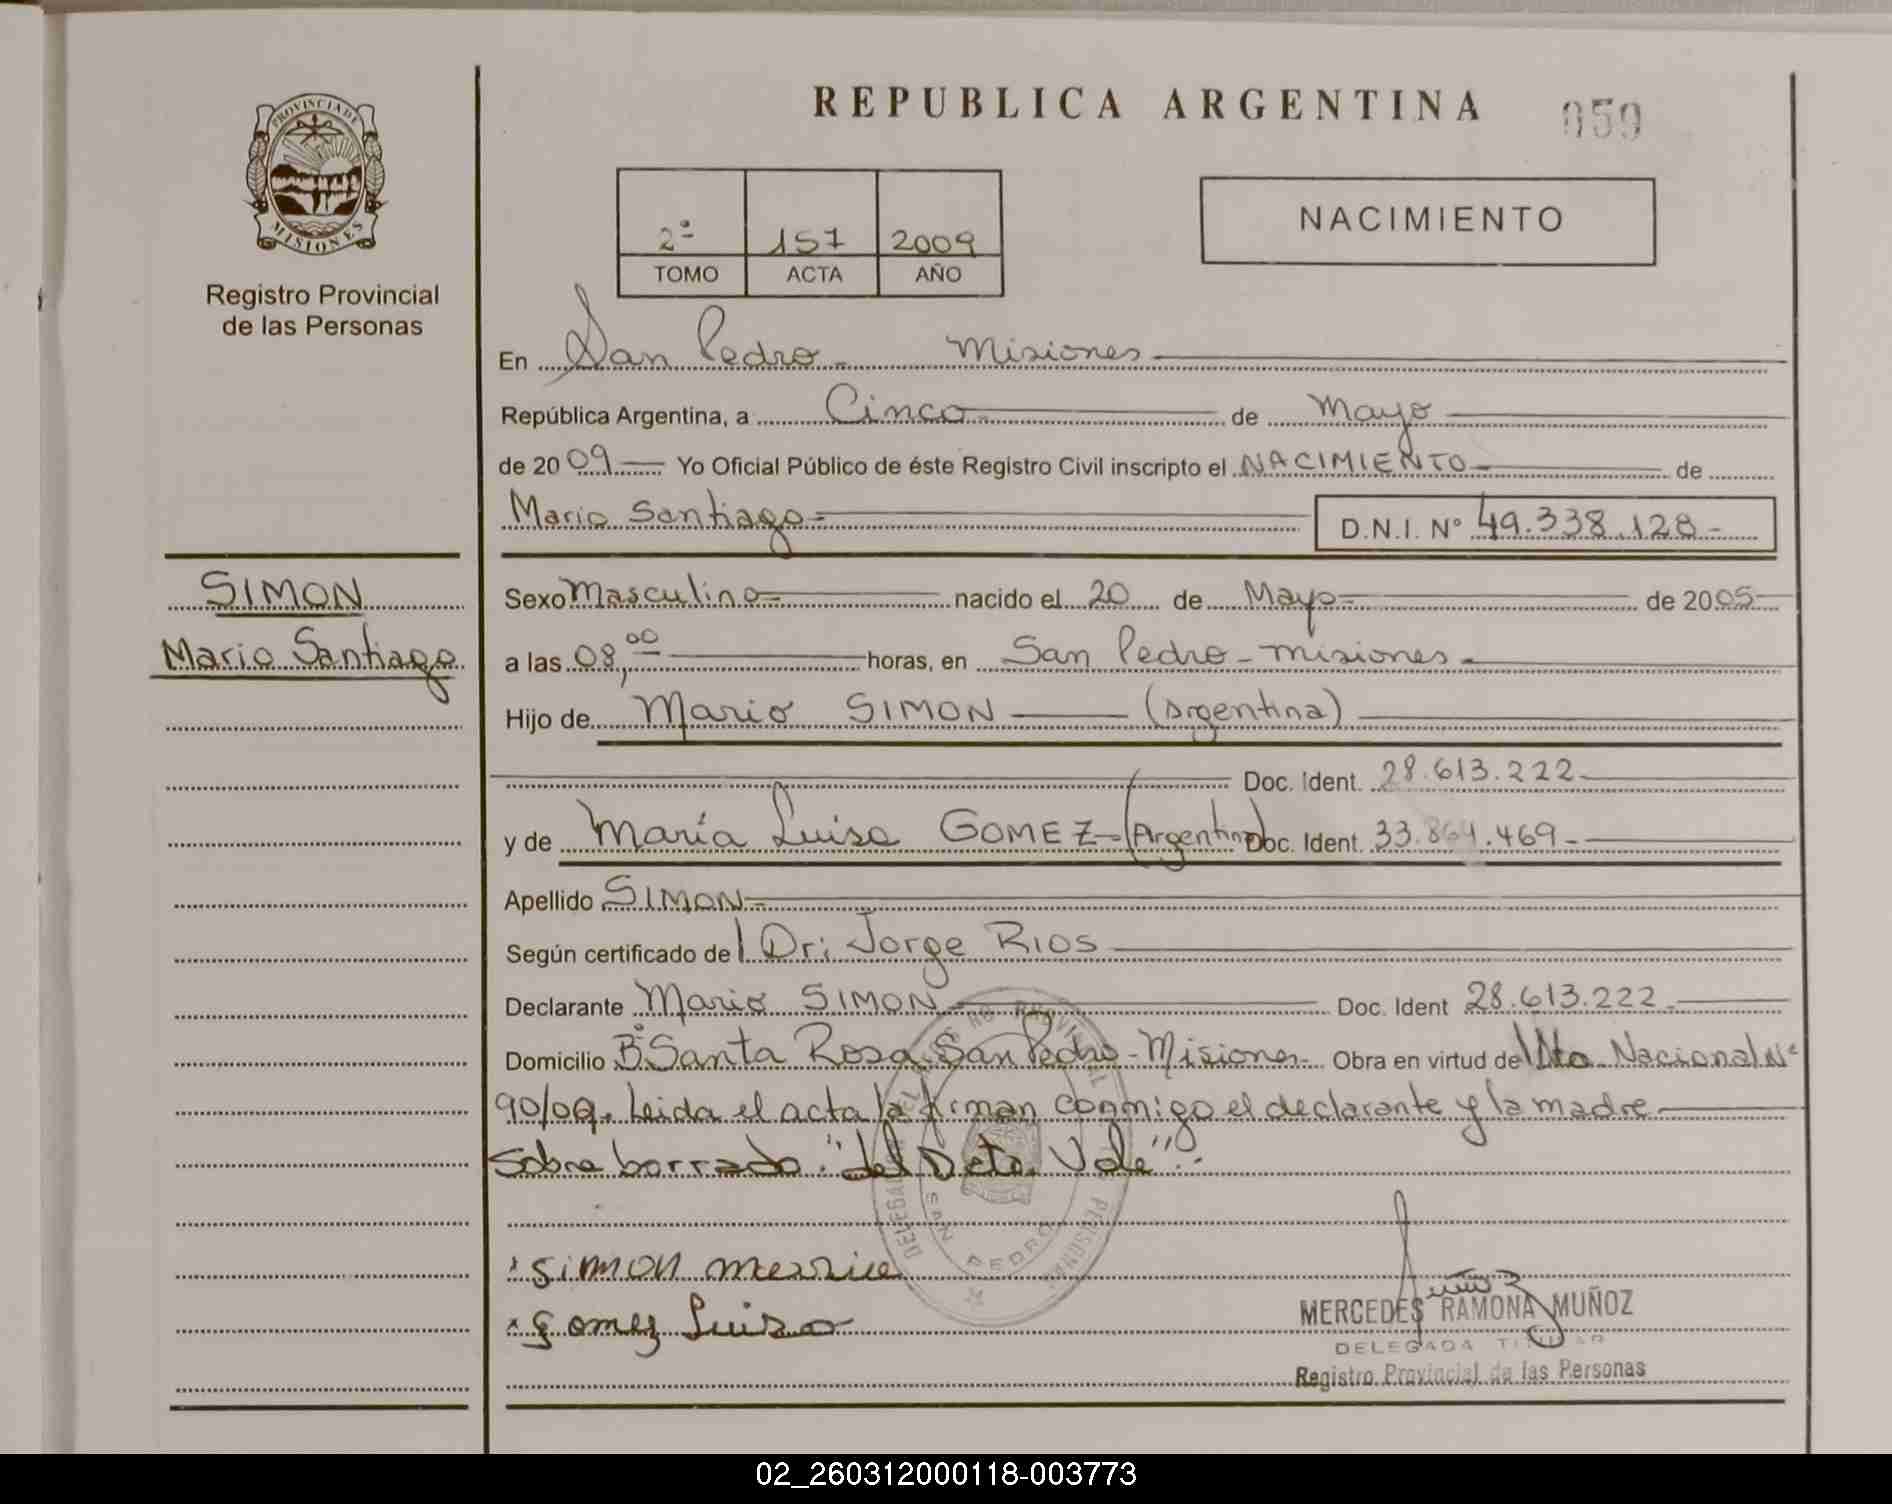 REPUBLICA ARGENTINA
059
PROVINCIA DE MISIONES
Registro Provincial
de las Personas
2º 157 2009
TOMO ACTA AÑO
NACIMIENTO
En San Pedro - Misiones
República Argentina, a Cinco de Mayo
de 2009 Yo Oficial Público de éste Registro Civil inscripto el NACIMIENTO de
Mario Santiago D.N.I. Nº 49.338.128-
SIMON
Mario Santiago
Sexo Masculino nacido el 20 de Mayo de 2005
a las 08,00 horas, en San Pedro - Misiones
Hijo de Mario SIMON (Argentina)
Doc. Ident. 28.613.222
y de María Luisa GOMEZ (Argentina) Doc. Ident. 33.864.469
Apellido SIMON
Según certificado de Dr: Jorge RIOS
Declarante Mario SIMON Doc. Ident 28.613.222
Domicilio Bº Santa Rosa San Pedro - Misiones Obra en virtud de Nacional Nº
90/09. Leida el acta la firman conmigo el declarante y la madre
Sobre borrado: "del Dcto. Vale".
SAN PEDRO
simon
gomez Luisa
MERCEDES RAMONA MUÑOZ
DELEGADA TITULAR
Registro Provincial de las Personas
02_260312000118-003773